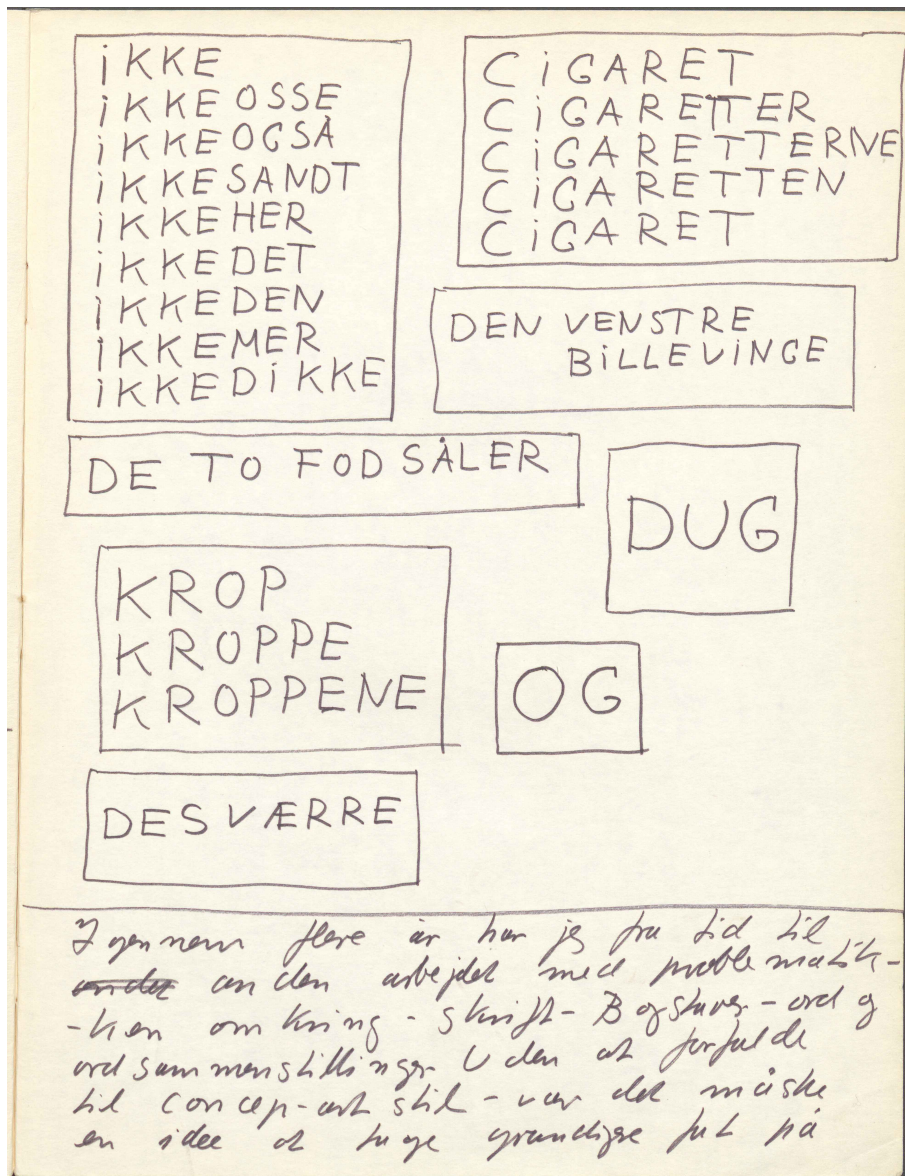 iKKE
iKKE OSSE
iKKE OGSÅ
iKKE SANDT
iKKE HER
iKKE DET
iKKE DEN
iKKE MER
iKKE DiKKE
CiGARET
CiGARETTER
CiGARETTERNE
CiGARETTEN
CiGARET
DEN VENSTRE
BiLLEVINGE
DE TO FODSÅLER
DUG
KROP
KROPPE
KROPPENE
OG
DESVÆRRE
Igennem flere år har jeg fra tid til
anden arbejdet med problematik-
-ken omkring - skrift - Bogstaver - ord og
ordsammenstillinger. Uden at forfalde
til concep-art stil - var det måske
en idee at tage grundigere fat på